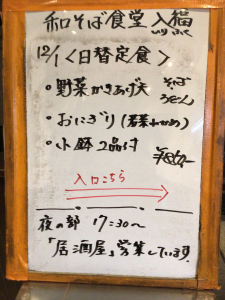 和そば食堂 入福
いりふく
12/1 〈日替定食〉
・野菜かきあげ天 そば
うどん
・おにぎり(若菜わかめ)
・小鉢2品付
入口こちら
夜の部 17:30〜
「居酒屋」営業しています。